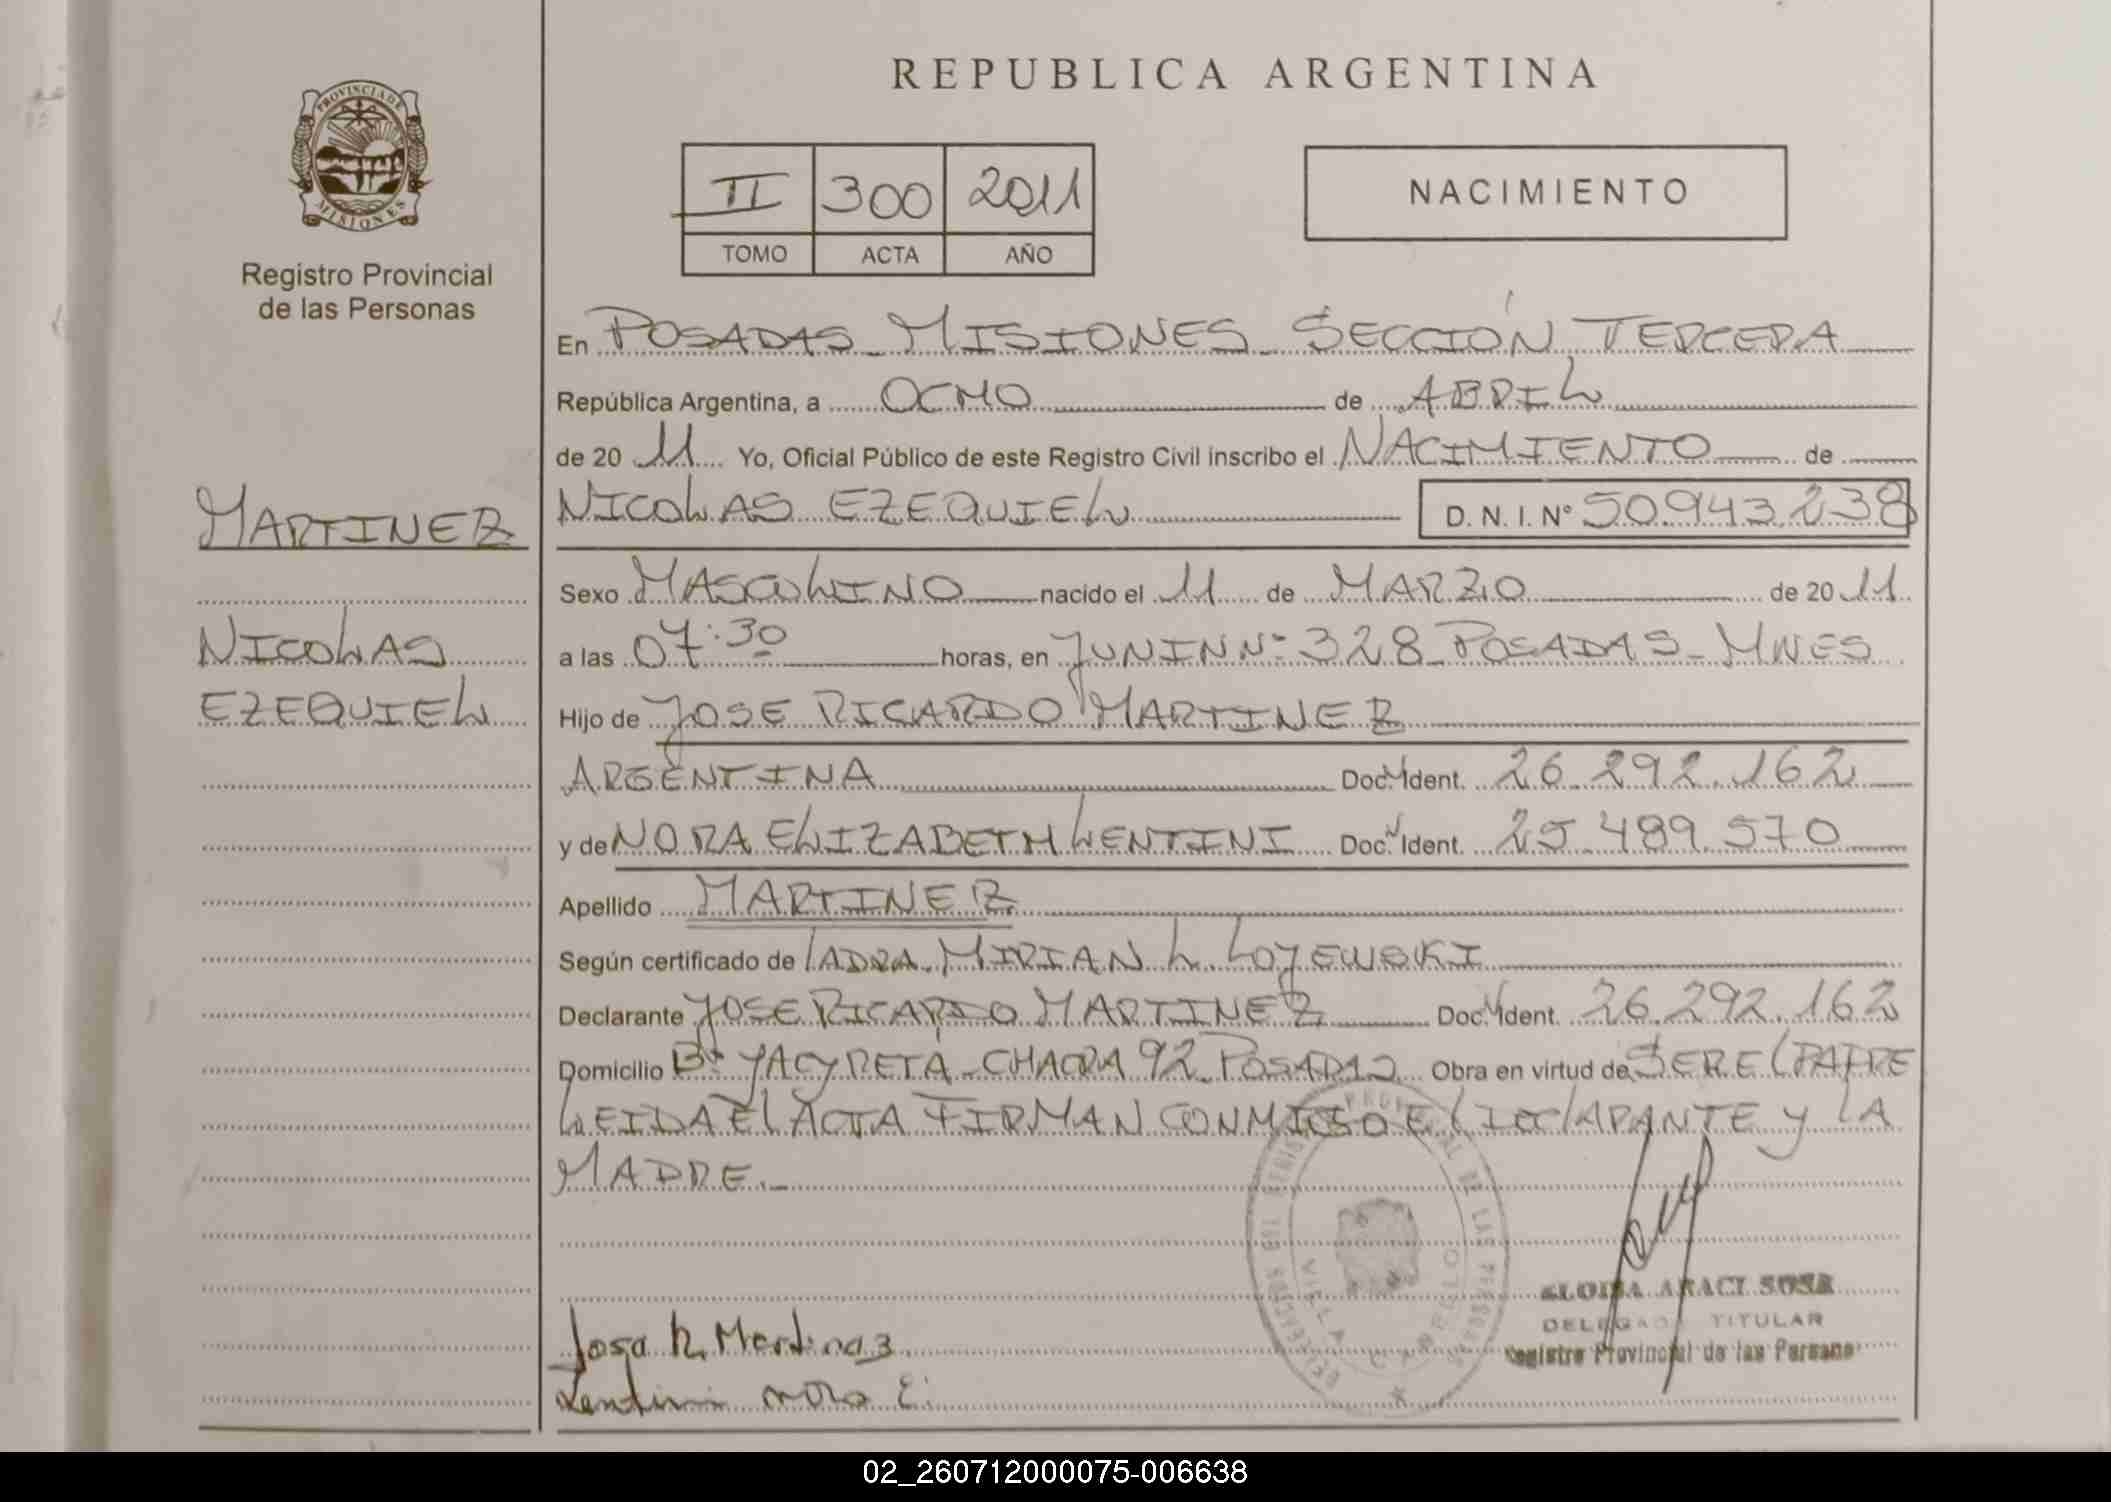 REPUBLICA ARGENTINA
PROVINCIA DE
MISIONES
Registro Provincial
de las Personas
II 300 2011
TOMO ACTA AÑO
NACIMIENTO
En POSADAS - MISIONES - SECCIÓN TERCERA
República Argentina, a OCHO de ABRIL
de 20 11 Yo, Oficial Público de este Registro Civil inscribo el NACIMIENTO de
MARTINEZ
NICOLAS EZEQUIEL D. N. I. Nº 50.943.238
Sexo MASCULINO nacido el 11 de MARZO de 20 11
NICOLAS
a las 07:30 horas, en JUNIN Nº 328 - POSADAS - MNES
EZEQUIEL
Hijo de JOSE RICARDO MARTINEZ
ARGENTINA Doc. N Ident. 26.292.162
y de NORA ELIZABETH LENTINI Doc. N Ident. 25.489.570
Apellido MARTINEZ
Según certificado de LA DRA. MIRIAN L. LOJEWSKI
Declarante JOSE RICARDO MARTINEZ Doc. N Ident. 26.292.162
Domicilio Bº YACYRETA - CHACRA 92 - POSADAS Obra en virtud de SER EL PADRE
LEIDA EL ACTA FIRMAN CONMIGO EL DECLARANTE Y LA
MADRE.-
DELEGADOS DEL REGISTRO PROVINCIAL DE LAS PERSONAS
VILLA CABELLO
ELOISA ARACI SOSA
DELEGADA TITULAR
Registro Provincial de las Personas
Jose R. Martinez
Lentini Nora E.
02_260712000075-006638